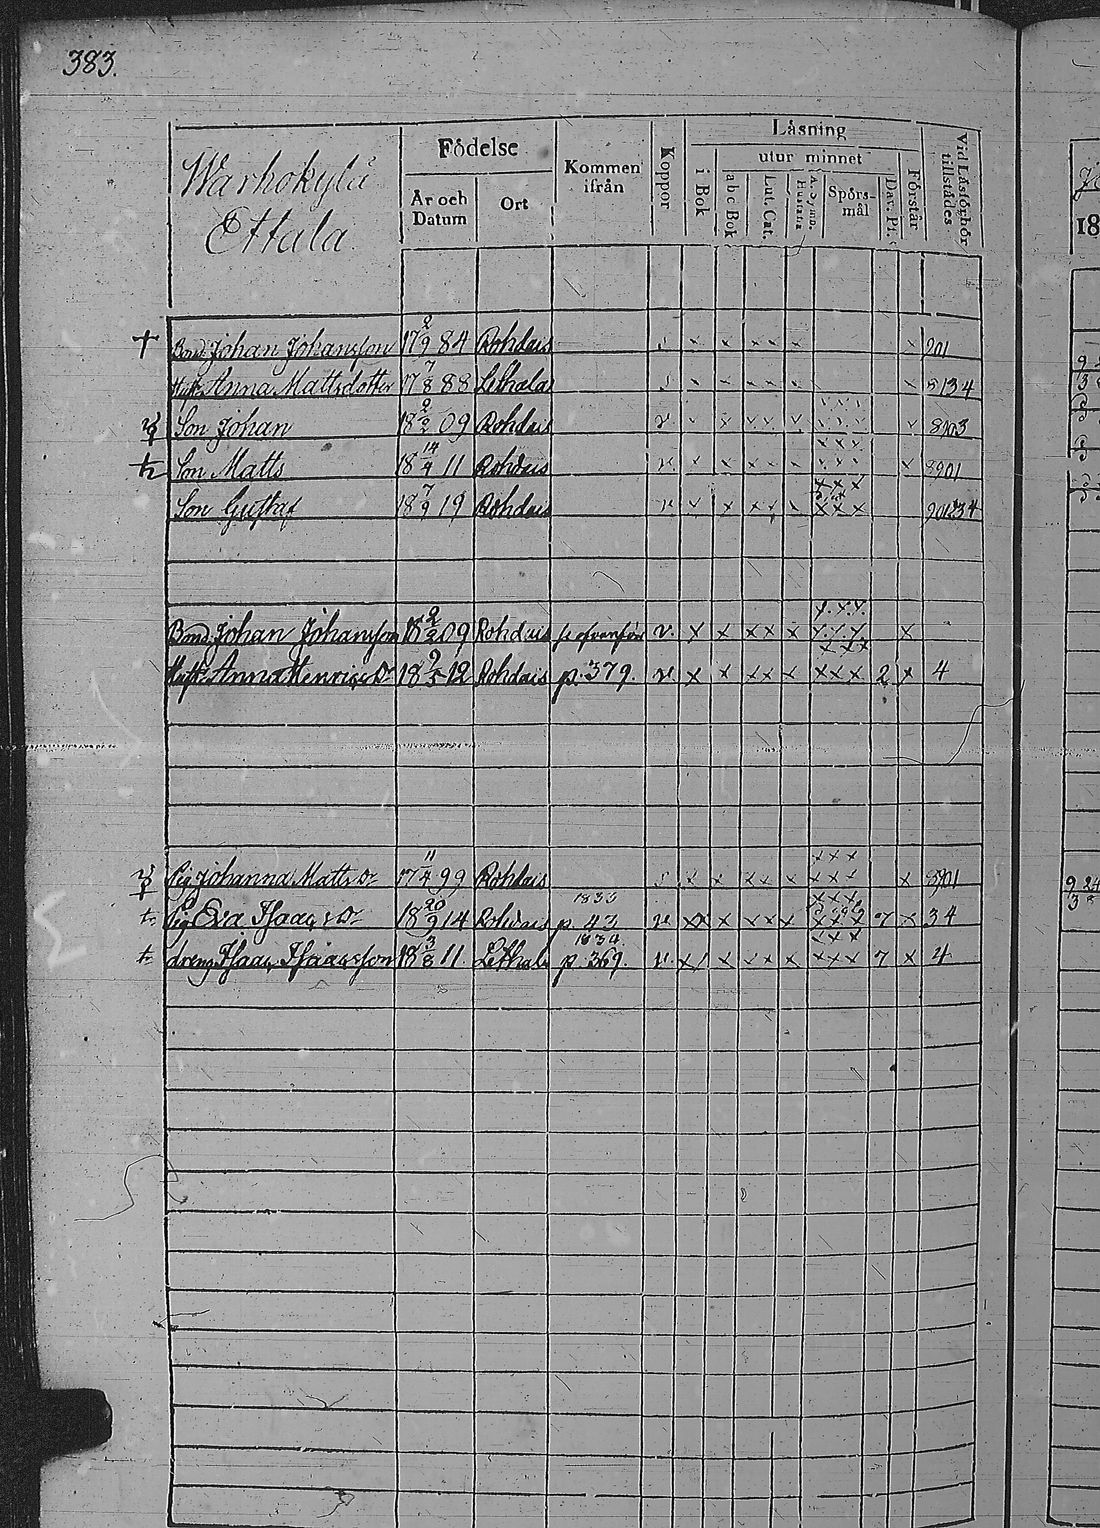 383.
Warhokylä
Ettala.
Födelse
År och Datum
Ort
Kommen ifrån
Koppor
Låsning
utur minnet
i Bok
abc Bok
Lut. Cat.
Hustafla
Spörs-mål
Dav. Ps.
Förstår
Vid Låsförhör tillstådes
18
† Bond. Johan Johansson 17 2/9 84 Rohdais s x x x x x x 901
Hust. Anna Mattsdotter 17 7/8 88 Lethala s x x x x x x 8134
Son Johan 18 2/2 09 Rohdais v x x x x x
Son Matts 18 14/4 11 Rohdais v x x x x x x x x x 8901
Son Gustaf 18 7/9 19 Rohdais v x x x x x x x x 901234
Bond. Johan Johansson 18 2/2 09 Rohdais se ofvanföre v. x x x x x x x x x
Hust. Anna Henrics Dr 18 9/5 12 Rohdais p. 379. v. x x x x x x x x 2 x 4
Pig. Johanna Matts Dr 17 11/4 99 Rohdais s x x x x x x x x x 8901
1833
Pig Eva Isaacs Dr 18 20/9 14 Rohdais p. 43 v x x x x x x 7 x 34
1834.
dreng Isaac Isaacsson 18 3/8 11. Lethala p. 369. v. x x x x x x x x x 7 x 4